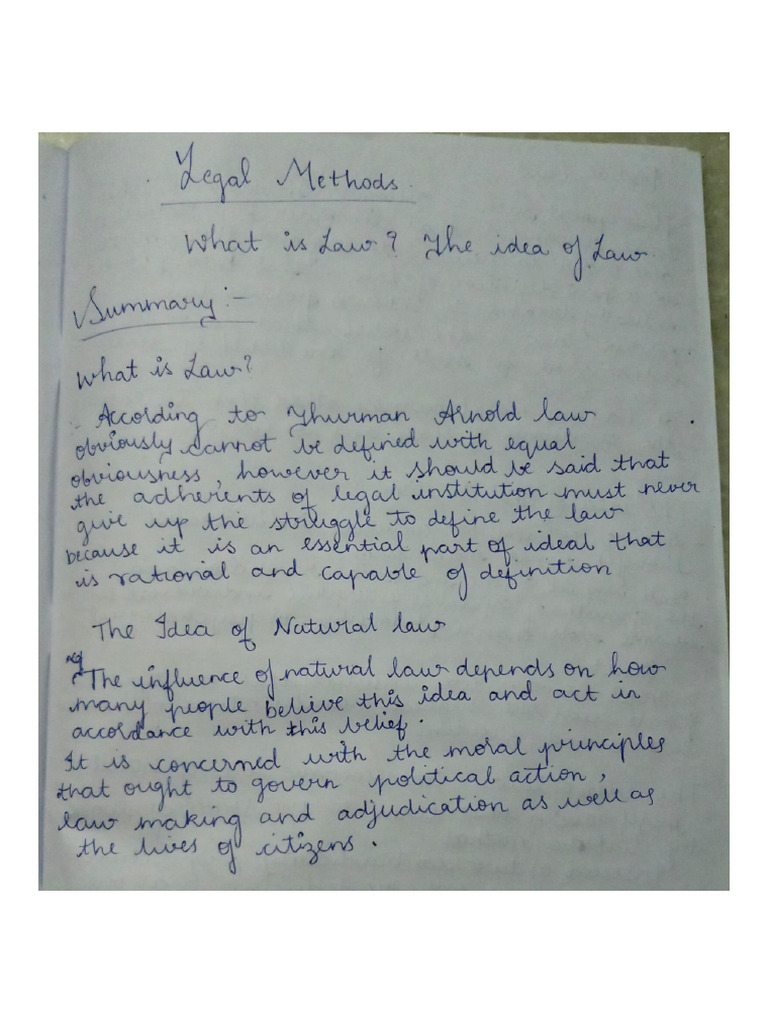 Legal Methods.
What is Law? The idea of Law.
Summary:-
What is Law?
According to Thurman Arnold law
obviously cannot be defined with equal
obviousness, however it should be said that
the adherents of legal institution must never
give up the struggle to define the law
because it is an essential part of ideal that
is rational and capable of definition
The Idea of Natural law
The influence of natural law depends on how
many people believe this idea and act in
accordance with this belief.
It is concerned with the moral principles
that ought to govern political action,
law making and adjudication as well as
the lives of citizens.